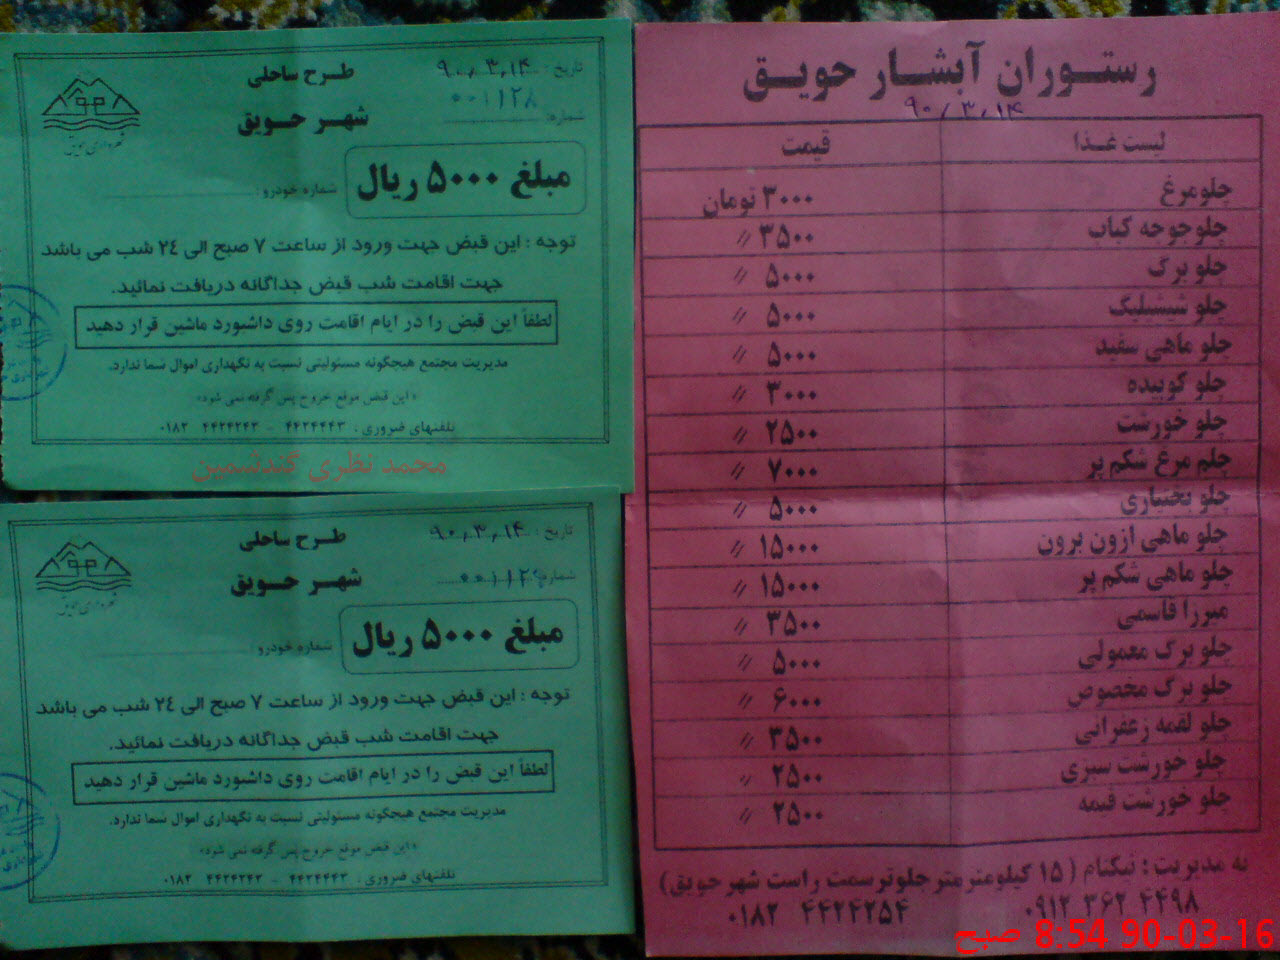 طرح ساحلی
شهر حویق
تاریخ: ۹۰/۳/۱۴
شماره: ۰۰۱۱۲۸
شهرداری حویق
مبلغ ۵۰۰۰ ریال
شماره خودرو:
توجه: این قبض جهت ورود از ساعت ۷ صبح الی ۲۴ شب می باشد
جهت اقامت شب قبض جداگانه دریافت نمائید.
لطفاً این قبض را در ایام اقامت روی داشبورد ماشین قرار دهید
مدیریت مجتمع هیچگونه مسئولیتی نسبت به نگهداری اموال شما ندارد.
«این قبض موقع خروج پس گرفته نمی شود»
تلفنهای ضروری: ۴۴۲۴۴۴۳ - ۴۴۲۴۲۴۳ ۰۱۸۲
محمد نظری گندشمین
طرح ساحلی
شهر حویق
تاریخ: ۹۰/۳/۱۴
شماره:
شهرداری حویق
مبلغ ۵۰۰۰ ریال
شماره خودرو:
توجه: این قبض جهت ورود از ساعت ۷ صبح الی ۲۴ شب می باشد
جهت اقامت شب قبض جداگانه دریافت نمائید.
لطفاً این قبض را در ایام اقامت روی داشبورد ماشین قرار دهید
مدیریت مجتمع هیچگونه مسئولیتی نسبت به نگهداری اموال شما ندارد.
«این قبض موقع خروج پس گرفته نمی شود»
تلفنهای ضروری: ۴۴۲۴۴۴۳ - ۴۴۲۴۲۴۳ ۰۱۸۲
رستوران آبشار حویق
۹۰/۳/۱۴
لیست غذا قیمت
چلو مرغ ۳۰۰۰ تومان
چلو جوجه کباب ۳۵۰۰ //
چلو برگ ۵۰۰۰ //
چلو شیشلیک ۵۰۰۰ //
چلو ماهی سفید ۵۰۰۰ //
چلو کوبیده ۳۰۰۰ //
چلو خورشت ۲۵۰۰ //
چلم مرغ شکم پر ۷۰۰۰ //
چلو بختیاری ۵۰۰۰ //
چلو ماهی ازون برون ۱۵۰۰۰ //
چلو ماهی شکم پر ۱۵۰۰۰ //
میرزا قاسمی ۳۵۰۰ //
چلو برگ معمولی ۵۰۰۰ //
چلو برگ مخصوص ۶۰۰۰ //
چلو لقمه زعفرانی ۳۵۰۰ //
چلو خورشت سبزی ۲۵۰۰ //
چلو خورشت قیمه ۲۵۰۰ //
به مدیریت: نیکنام (۱۵ کیلومترمتر جلوتر سمت راست شهر حویق)
۰۹۱۲ ۳۶۲ ۲۴۹۸ ۰۱۸۲ ۴۴۲۴۲۵۴
90-03-16 8:54 صبح